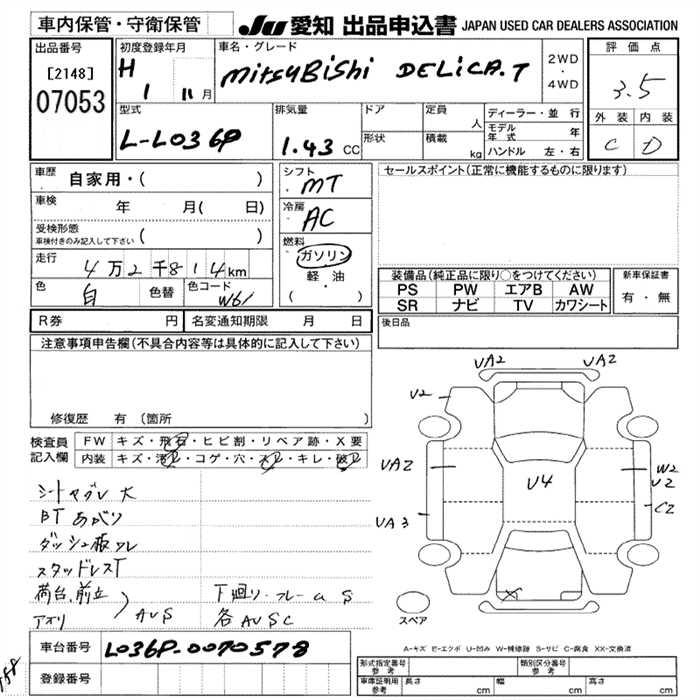 車内保管・守衛保管
JU 愛知 出品申込書 JAPAN USED CAR DEALERS ASSOCIATION
出品番号
[2148]
07053
初度登録年月
H 1 11月
車名・グレード
mitsuBiShi DELiCA.T
2WD
・
4WD
評価点
3.5
外装 内装
C D
型式
L-L036P
排気量
1.43 CC
ドア
形状
定員
人
積載
kg
ディーラー・並行
モデル年式 年
ハンドル 左・右
車歴
自家用・( )
車検
年 月( 日)
受検形態
車検付きのみ記入して下さい ( )
走行
4万2千814km
色
白
色替
色コード
W61
シフト
MT
冷房
AC
燃料
ガソリン
軽・油
( ・ )
セールスポイント(正常に機能するものに限ります)
装備品(純正品に限り○をつけてください)
PS PW エアB AW
SR ナビ TV カワシート
新車保証書
有・無
後日品
R券 円 名変通知期限 月 日
注意事項申告欄(不具合内容等は具体的に記入して下さい)
修復歴 有 (箇所 )
検査員
記入欄
FW キズ・飛石・ヒビ割・リペア跡・X要
内装 キズ・汚レ・コゲ・穴・スレ・キレ・破レ
シートヤブレ大
BTあがり
ダッシュ板ワレ
スタッドレスT
荷台.前立
アオリ
AUS
下廻り・フレーム S
各AUSC
UA2 UA2
U2
UA2
U4
W2
U2
C2
UA3
X
スペア
A-キズ E-エクボ U-凹み W-補修跡 S-サビ C-腐食 XX-交換済
車台番号
L036P-0070578
登録番号
形式指定番号
参考
類別区分番号
参考
車庫証明用
参考
長さ cm 幅 cm 高さ cm